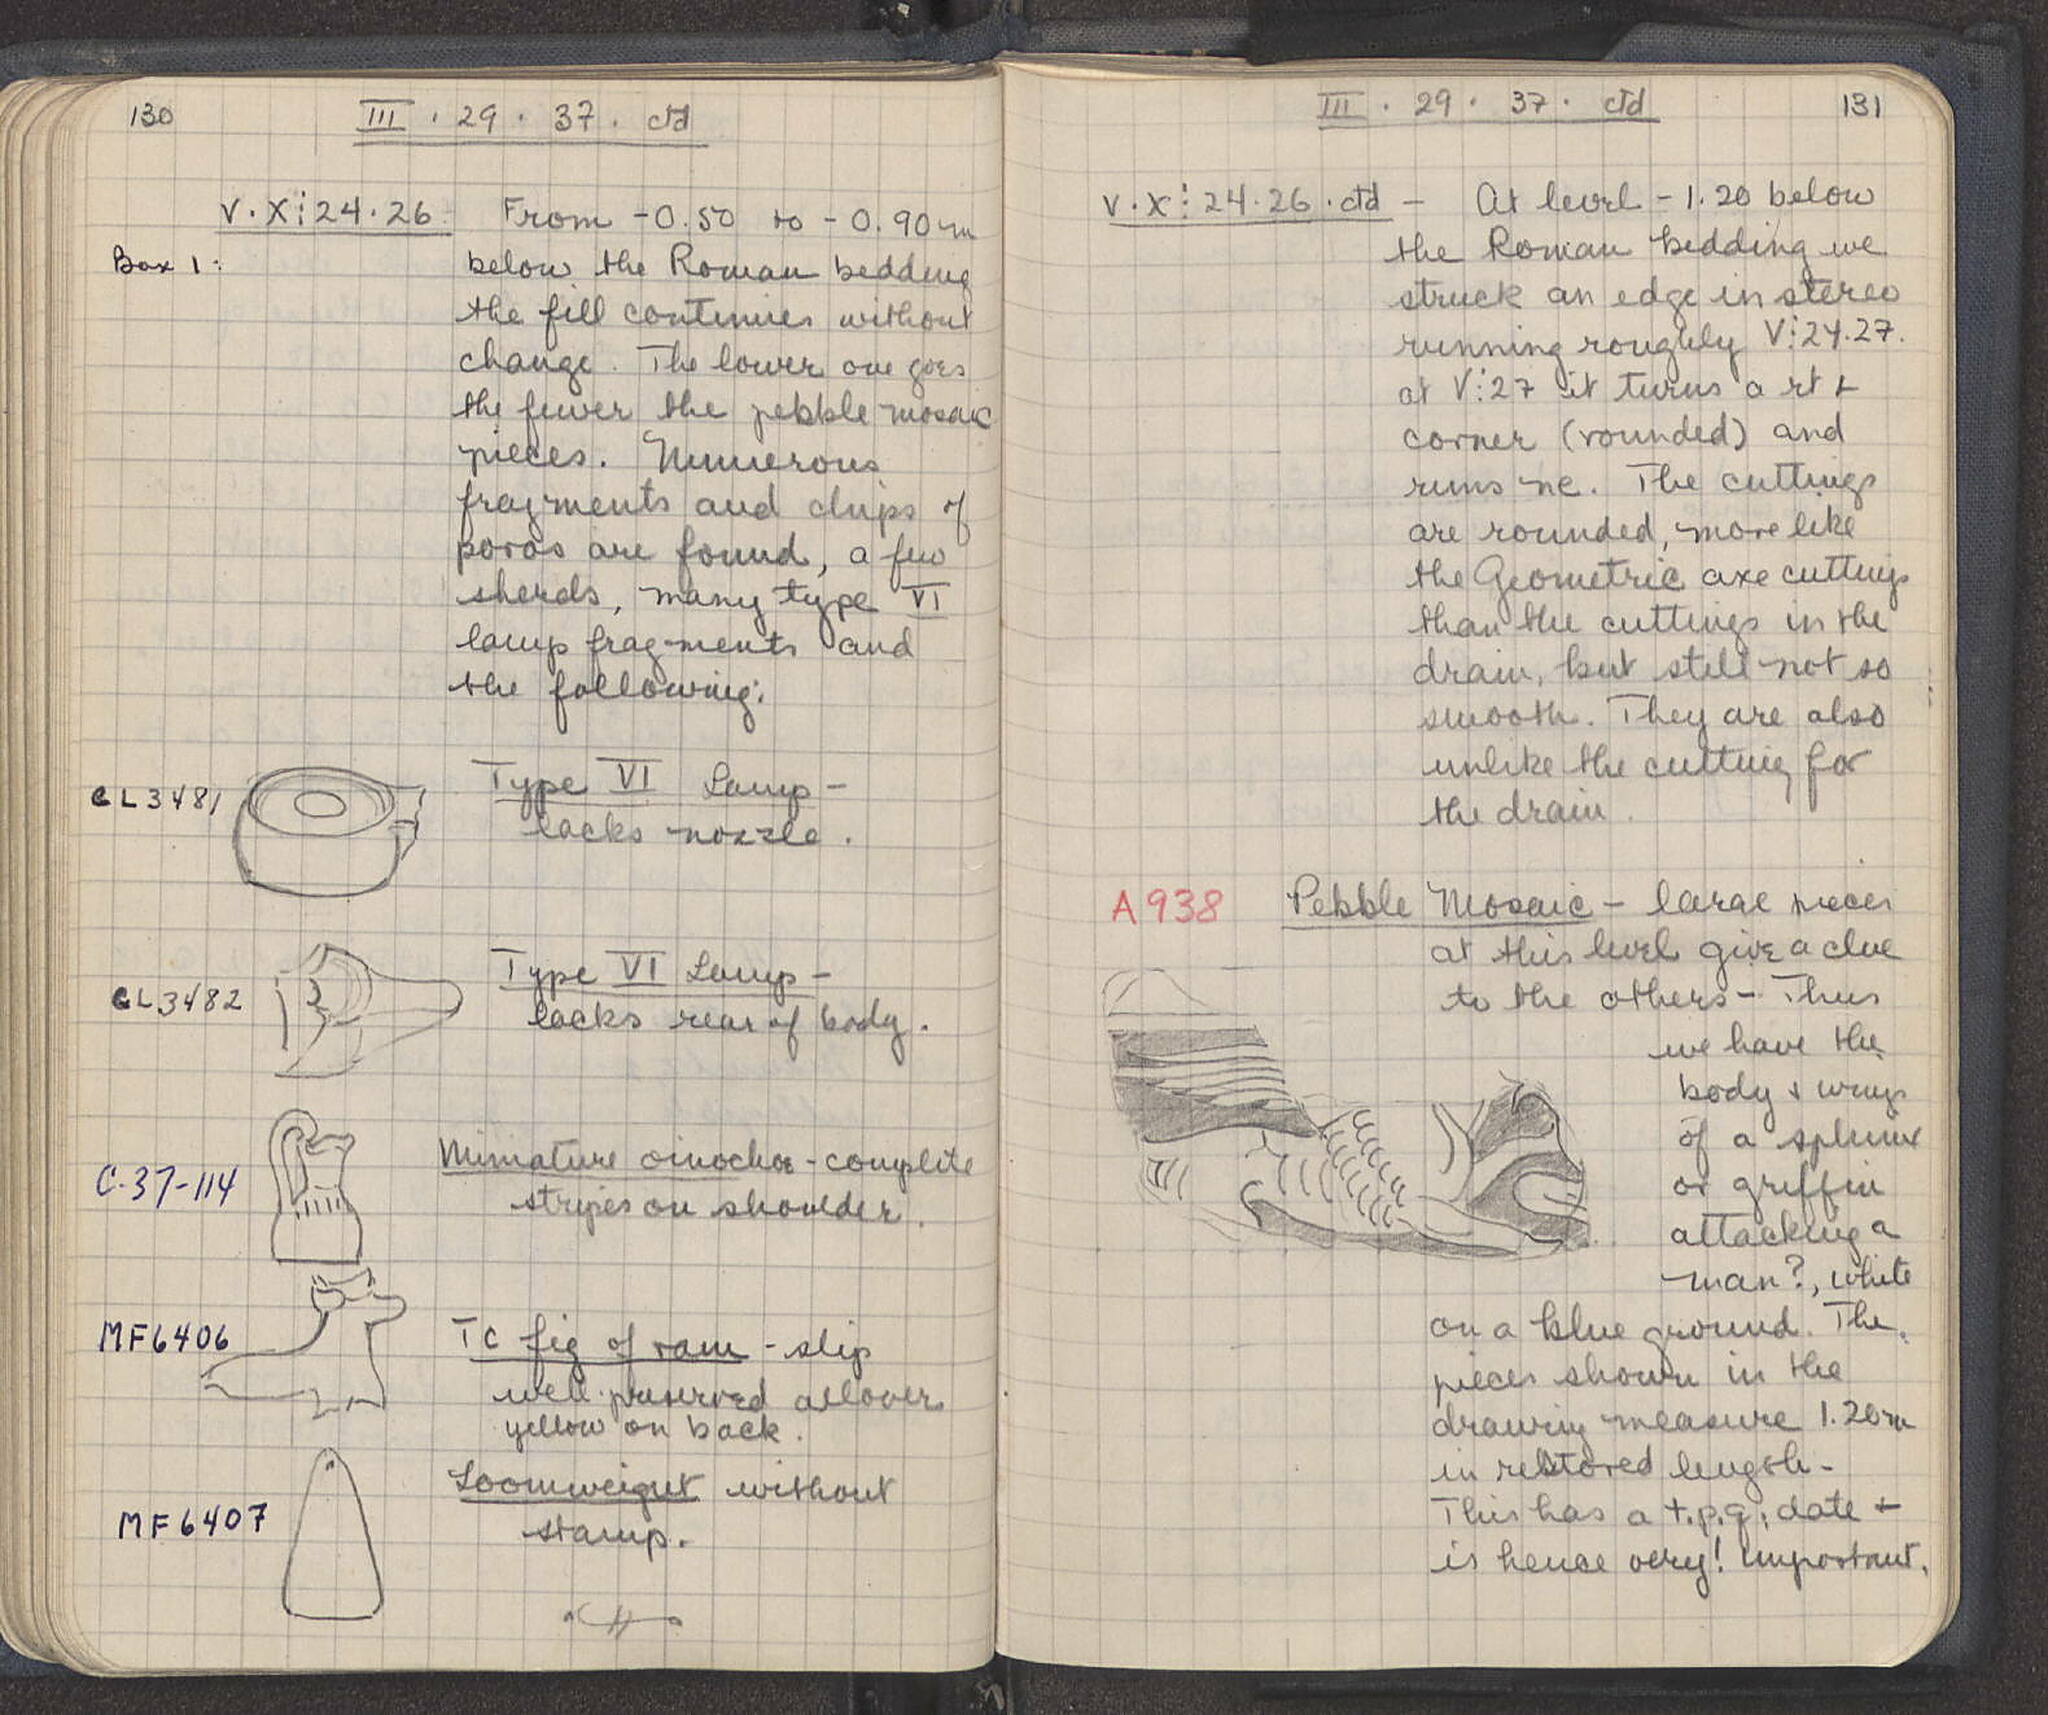 130
III · 29 · 37 · ctd
V·X⋮24·26 From -0.50 to -0.90m
Box 1: below the Roman bedding
the fill continues without
change. The lower one goes
the fewer the pebble mosaic
pieces. Numerous
fragments and chips of
poros are found, a few
sherds, many type VI
lamp fragments and
the following:
CL3481 Type VI Lamp -
lacks nozzle.
CL3482 Type VI Lamp -
lacks rear of body.
C-37-114 Miniature oinochoe - complete
stripes on shoulder.
MF6406 TC fig of ram - slip
well preserved allover
yellow on back.
MF6407 Loomweight without
stamp.
III · 29 · 37 · ctd
131
V·X⋮24·26·ctd - At level -1.20 below
the Roman bedding we
struck an edge in stereo
running roughly V⋮24·27.
at V⋮27 it turns a rt ∟
corner (rounded) and
runs ne. The cuttings
are rounded, more like
the Geometric axe cuttings
than the cuttings in the
drain, but still not so
smooth. They are also
unlike the cutting for
the drain.
A938 Pebble Mosaic - large pieces
at this level give a clue
to the others - Thus
we have the
body + wings
of a sphinx
or griffin
attacking a
man?, white
on a blue ground. The
pieces shown in the
drawing measure 1.20m
in restored length -
This has a t.p.q. date +
is hence very! important.